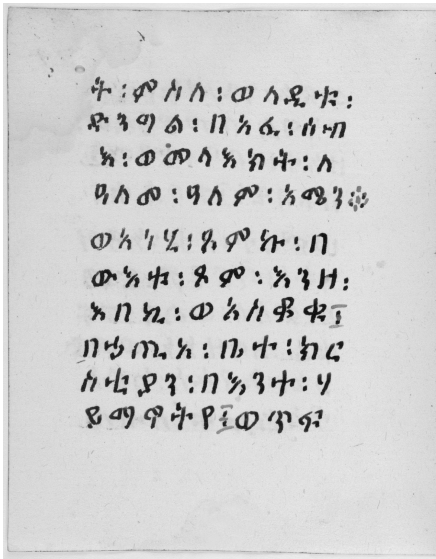 ት፡ምስለ፡ወላዲቱ፡
ድንግል፡በአፈ፡ሰብ
እ፡ወመላእክት፡ለ
ዓለመ፡ዓለም፡አሜን፨
ወአነሂ፡ጾምኩ፡በ
ውእቱ፡ጾም፡እንዘ፡
እበኪ፡ወእስቆቁ
በኃጢአ፡ቤተ፡ክር
ስቲያን፡በእንተ፡ሃ
ይማኖት የ ወጥፍ